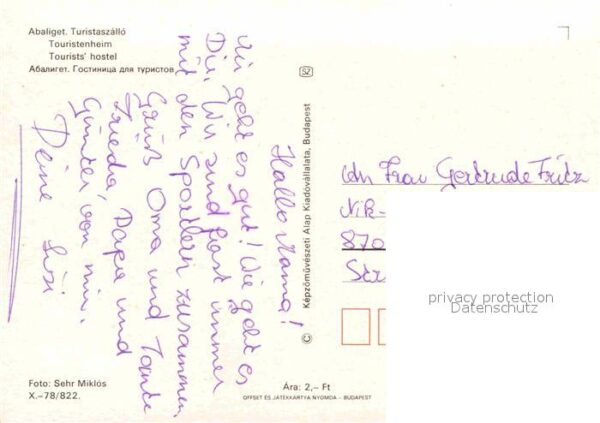 Abaliget. Turistaszálló
Touristenheim
Tourists' hostel
Абалигет. Гостиница для туристов
Hallo Mama!
Mir geht es gut! Wie geht es
Dir. Wir sind fast immer
mit den Sportlern zusammen.
Grüß Oma und Tante
Frieda, Papa und
Günter von mir.
Deine Susi
© Képzőművészeti Alap Kiadóvállalata, Budapest
An Frau Gertrude Fritz
Nik-
870
privacy protection
Datenschutz
Foto: Sehr Miklós
X.–78/822.
Ára: 2,– Ft
OFFSET ÉS JÁTÉKKÁRTYA NYOMDA – BUDAPEST